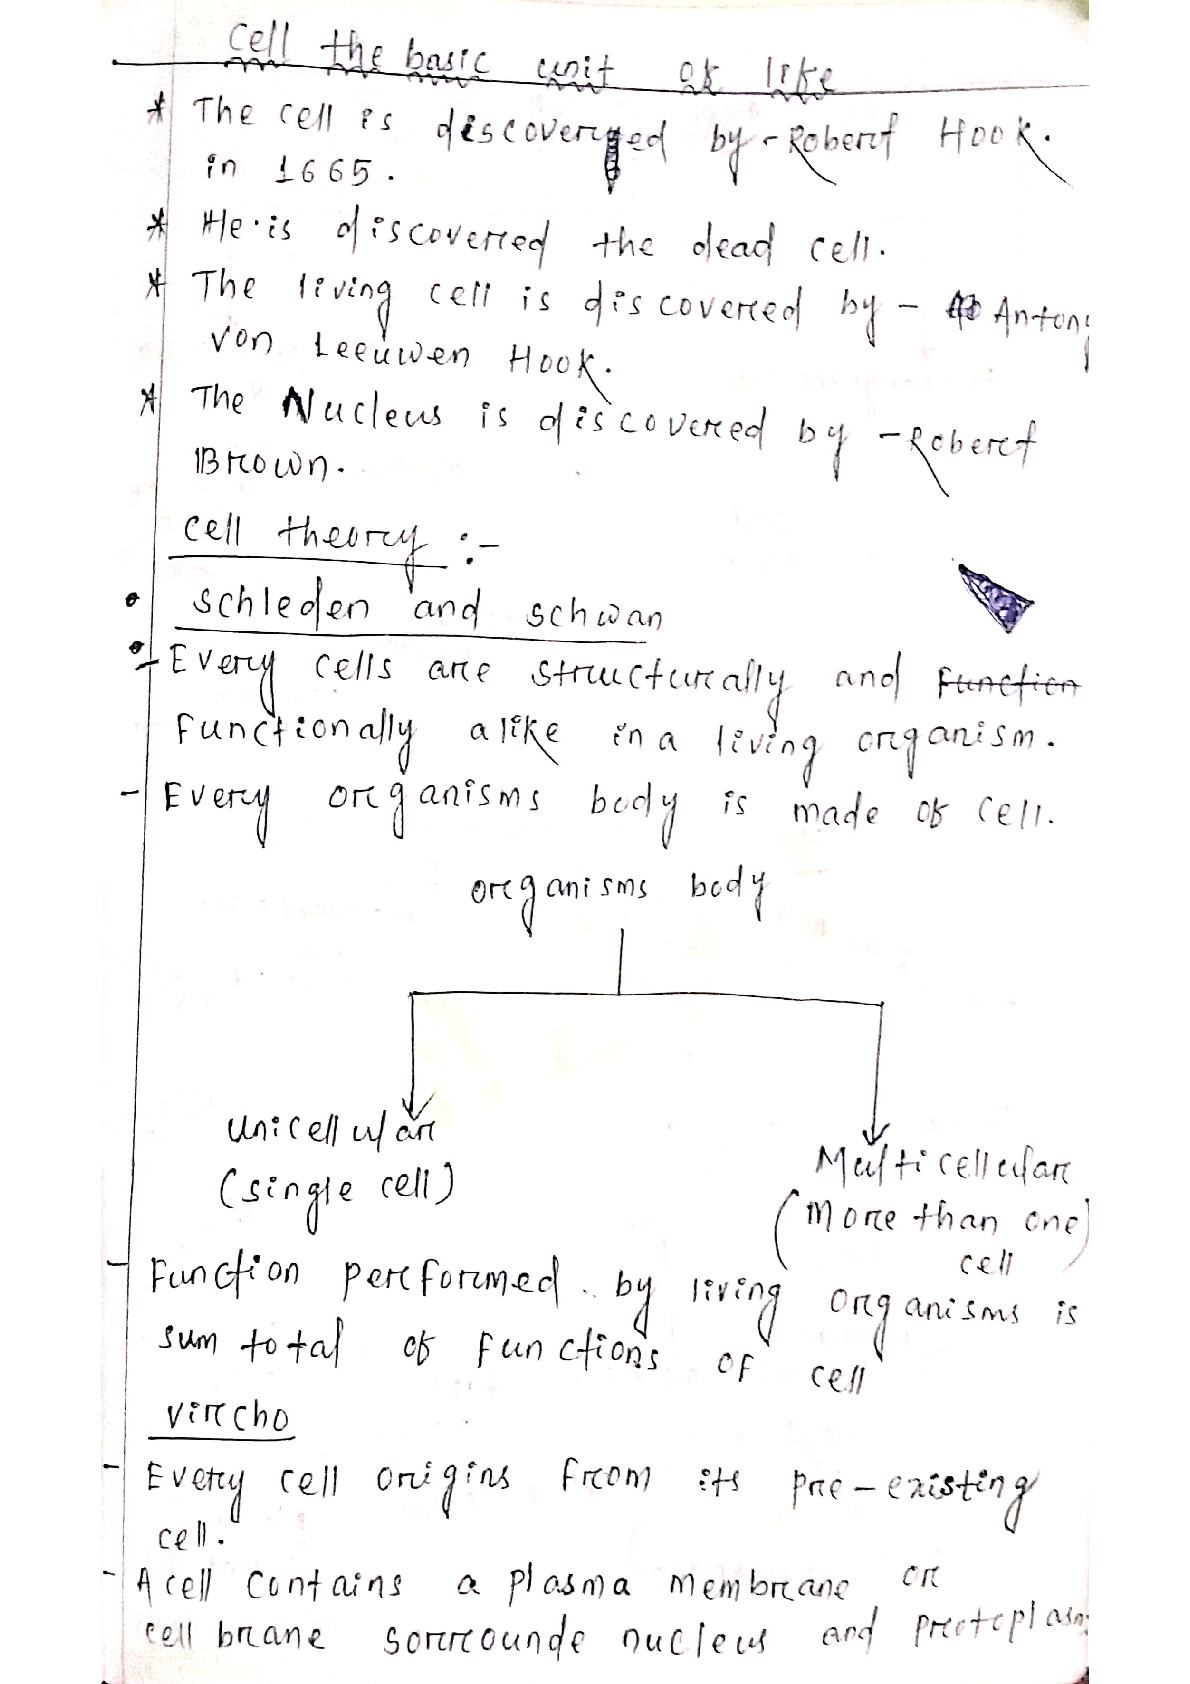 Cell the basic unit of life
* The cell is discovered by - Robert Hook.
in 1665.
* He is discovered the dead cell.
* The living cell is discovered by - Antony
Von Leeuwen Hook.
* The Nucleus is discovered by - Robert
Brown.
Cell theory :-
• Schleden and Schwan
- Every cells are structurally and function
functionally alike in a living organism.
- Every organisms body is made of cell.
organisms body
Unicellular
(single cell)
Multicellular
(More than one)
cell
- Function performed by living organisms is
sum total of functions of cell
Vircho
- Every cell origins from its pre-existing
cell.
- A cell contains a plasma membrane or
cell brane sorrounde nucleus and protoplasm